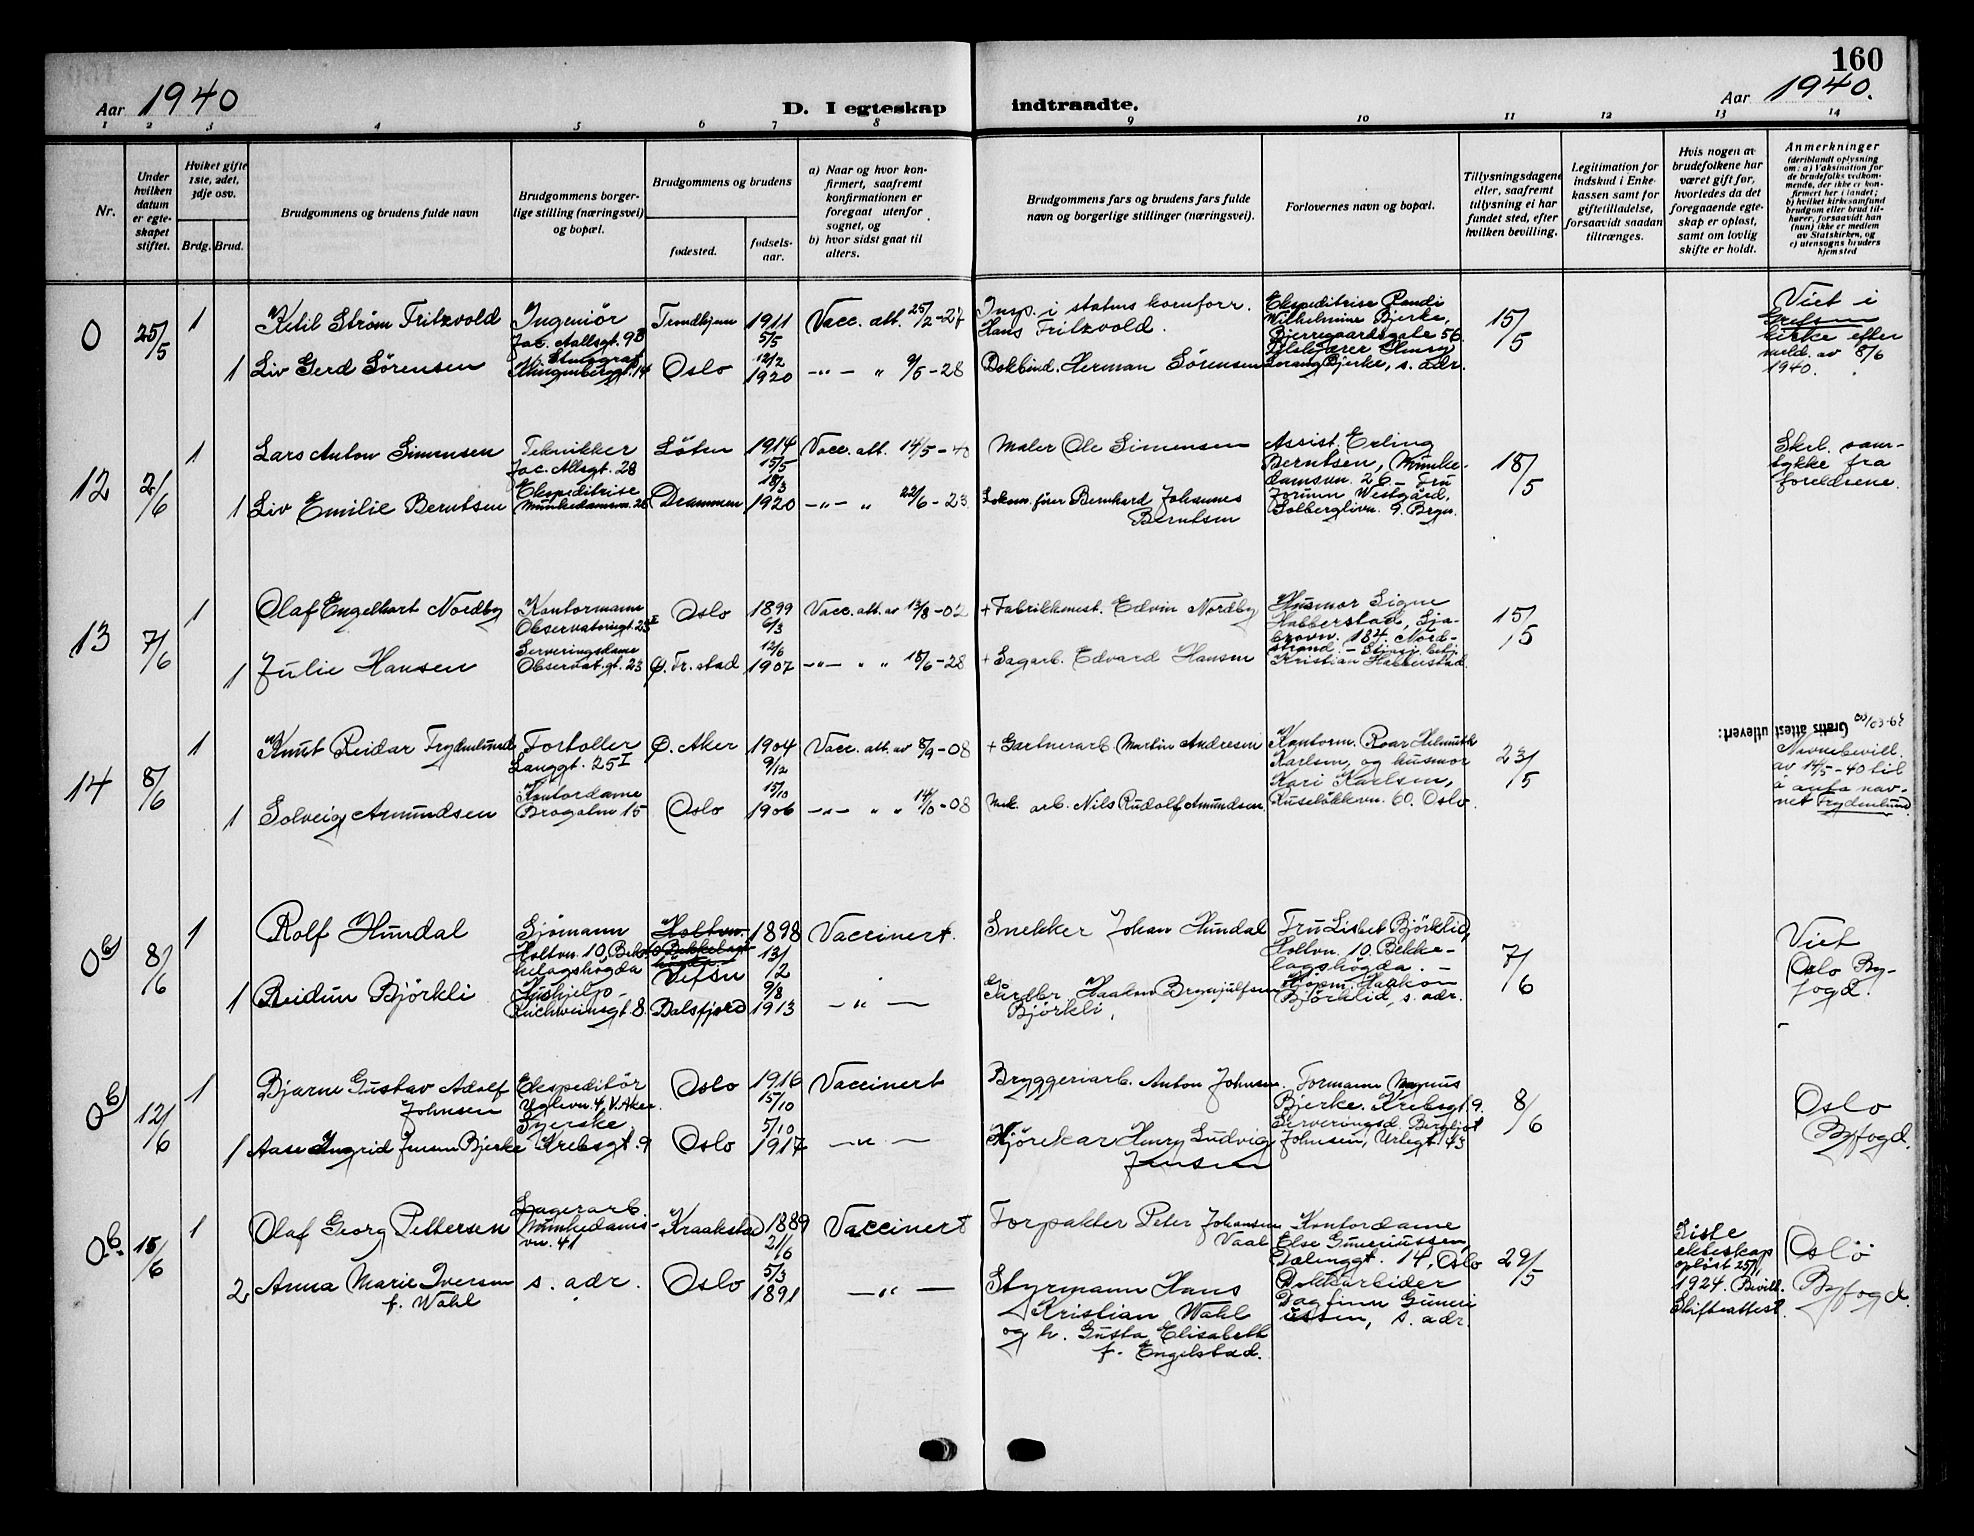 160
Aar 1940
D. I egteskap indtraadte.
Aar 1940.
1 2 3 4 5 6 7 8 9 10 11 12 13 14
Nr.
Under
hvilken
datum
er egte-
skapet
stiftet.
Hvilket gifte
1ste, 2det,
3dje osv.
Brdg. Brud.
Brudgommens og brudens fulde navn
Brudgommens borger-
lige stilling (næringsvei)
og bopæl.
Brudgommens og brudens
fødested.
fødsels-
aar.
a) Naar og hvor kon-
firmert, saafremt
konfirmationen er
foregaat utenfor
sognet, og
b) hvor sidst gaat til
alters.
Brudgommens fars og brudens fars fulde
navn og borgerlige stillinger (næringsvei).
Forlovernes navn og bopæl.
Tillysningsdagene
eller, saafremt
tillysning ei har
fundet sted, efter
hvilken bevilling.
Legitimation for
indskud i Enke-
kassen samt for
giftetilladelse,
forsaavidt saadan
tiltrænges.
Hvis nogen av
brudefolkene har
været gift før,
hvorledes da det
foregaaende egte-
skap er opløst,
samt om lovlig
skifte er holdt.
Anmerkninger
(deriblandt oplysning
om: a) Vaksination for
de brudefolks vedkom-
mende, der ikke er kon-
firmert her i landet;
b) hvilket kirkesamfund
brudgom eller brud til-
hører, forsaavidt han
(hun) ikke er medlem
av Statskirken, og
c) utensogns bruders
hjemsted
0
25/5
1
Ketil Strøm Fritzvold
Ingeniør
Jac. Aallsgt. 9B
Trondhjem
1911
5/5
Vacc. att. 25/2-27
Insp. i statens kornforr.
Hans Fritzvold.
Ekspeditrise Randi
Wilhelmine Bjerke,
Bjerregaardsgate 56
Lorang Bjerke, s. adr.
15/5
Viet i
kirke efter
meld. av 8/6
1940.
1
Liv Gerd Sørensen
Klingenberggt. 14
Oslo
12/2
1920
-„- „ 9/5-28
Bokbind. Herman Sørensen
12
2/6
1
Lars Anton Simensen
Tekniker
Jac. Allsgt. 28
Løten
1914
15/5
Vacc. att. 14/5-40
Maler Ole Simensen
Assist. Erling
Berntsen, Munke-
damsvn. 26 - Fru
Jorunn Westgård,
Solberglivn. 9. Bryn.
18/5
Skrl. sam-
tykke fra
foreldrene.
1
Liv Emilie Berntsen
Ekspeditrise
Munkedamsvn. 26
Drammen
18/3
1920
-„- „ 22/6-23
Lokom.fører Bernhard Johannes
Berntsen
13
7/6
1
Olaf Engelhart Nordby
Kontormann
Observatoriegt. 23 I
Oslo
1899
6/3
Vacc. att. av 13/8-02
+ Fabrikkmest. Edvin Nordby
Husmor Signe
Habberstad, Lja-
brovn. 184. Nord-
strand.
Kristian Habberstad.
15/5
1
Julie Hansen
Serveringsdame
Observat.gt. 23
Ø. Fr.stad
12/6
1907
-„- „ „ 15/6-28
+ Sagarb. Edvard Hansen
14
8/6
1
Knut Reidar Frydenlund
Fortoller
Langgt. 25 I
Ø. Aker
1904
9/12
Vacc. att. av 8/9-08
+ Gartnerarb Martin Andresen
Kontorm. Roar Helmuth
Karlsen, og husmor
Kari Karlsen,
Ruseløkkvn. 60. Oslo.
23/5
Gratis attest utlevert:
Navnebevill.
av 14/5-40 til
å anta nav-
net Frydenlund.
1
Solveig Amundsen
Kontordame
Brogatn 15
Oslo
15/10
1906
-„- „ „ 14/10-08
Mek. arb. Nils Rudolf Amundsen.
0 b)
8/6
1
Rolf Hundal
Sjømann
Holtvn. 10, Bek-
kelagshøgda
Vefsn
1898
13/2
Vaccinert.
Snekker Johan Hundal
Fru Lisbet Bjørklid,
Holtvn. 10. Bekke-
lagshøgda. -
Kjøpm. Haakon
Bjørklid, s. adr.
7/6
Viet
Oslo By-
fogd.
1
Reidun Bjørkli
Hushjelp
Eischweinsgt. 8.
Balsfjord
9/8
1913
-„-
Gårdbr. Haakon Brynjulfsen
Bjørkli,
0 b)
12/6
1
Bjarne Gustav Adolf
Johnsen
Ekspeditør
Uglevn. 4, V. Aker.
Oslo
1916
15/10
Vaccinert
Bryggeriarb. Anton Johnsen.
Formann Magnus
Bjerke. Krebsgt. 9.
Serveringsd. Bergljot
Johnsen, Urtegt. 43
8/6
Oslo
Byfogd.
1
Aase Ingrid Jensen Bjerke
Syerske,
Krebsgt. 9
Oslo
5/10
1917
-„-
Kjørekar Henry Ludvig
Jensen
0 b.
15/6
1
Olaf Georg Pettersen
Lagerarb.
Munkedams-
vn. 41
Kraakstad
1889
21/6
Vaccinert
Forpakter Peter Johansen
Vaal
Kontordame
Else Guneriussen,
Dælenggt. 14, Oslo
Dokkarbeider
Dagfinn Guneri
ussen, s. adr.
29/5
Siste
ekteskap
opløst 25/11
1924. Bevill.
Skifteattest.
Oslo
Byfogd.
2
Anna Marie Iversen
f. Wahl
s. adr.
Oslo
5/3
1891
-„-
Styrmann Hans
Kristian Wahl
og h. Gusta Elisabeth
f. Engelstad.